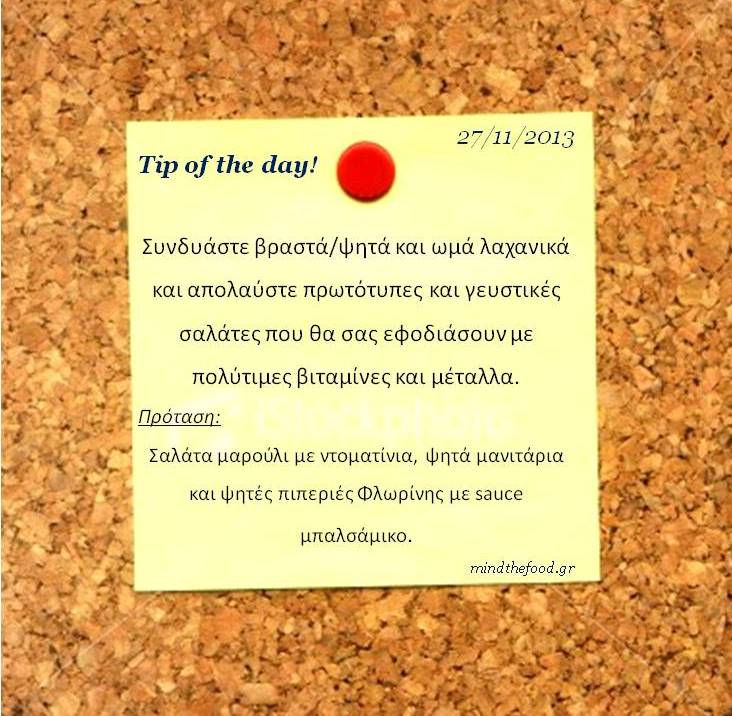 27/11/2013
Tip of the day!
Συνδυάστε βραστά/ψητά και ωμά λαχανικά
και απολαύστε πρωτότυπες και γευστικές
σαλάτες που θα σας εφοδιάσουν με
πολύτιμες βιταμίνες και μέταλλα.
Πρόταση:
iStockphoto
Σαλάτα μαρούλι με ντοματίνια, ψητά μανιτάρια
και ψητές πιπεριές Φλωρίνης με sauce
μπαλσάμικο.
mindthefood.gr